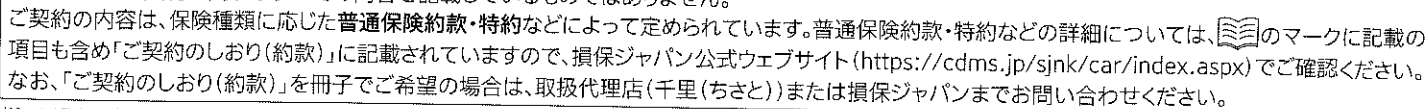 ご契約の内容は、保険種類に応じた普通保険約款・特約などによって定められています。普通保険約款・特約などの詳細については、のマークに記載の
項目も含め「ご契約のしおり(約款)」に記載されていますので、損保ジャパン公式ウェブサイト(https://cdms.jp/sjnk/car/index.aspx)でご確認ください。
なお、「ご契約のしおり(約款)」を冊子でご希望の場合は、取扱代理店(千里(ちさと))または損保ジャパンまでお問い合わせください。